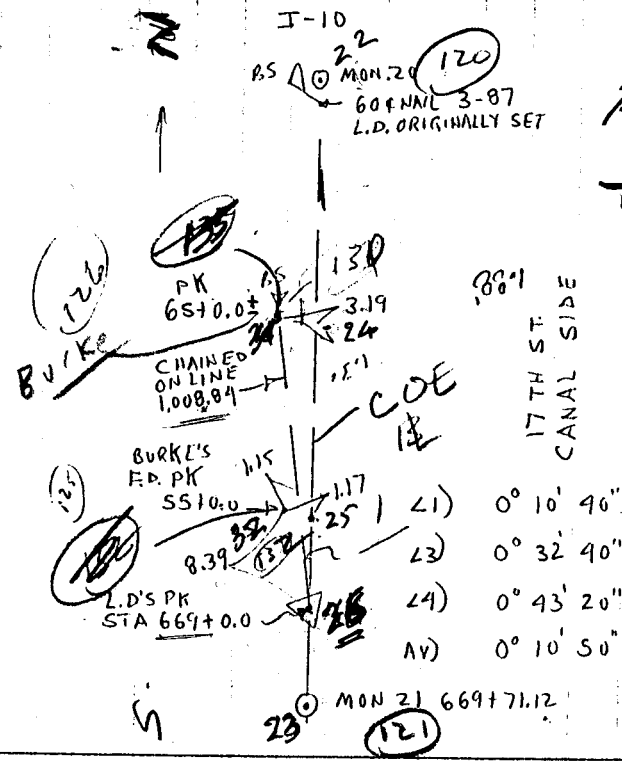 N
I-10
22
B.S MON. 20 120
60¢ NAIL 3-87
L.D. ORIGINALLY SET
135
126
PK
65+0.0±
1.5
130
3.19
24
Burke
CHAINED
ON LINE
1,008.84
COE
17 TH ST.
CANAL SIDE
BURKE'S
F.D. PK
55+0.0
125
1.15
1.17
25
8.39
132
L.D'S PK
STA 669+0.0
∠1) 0° 10' 40"
∠3) 0° 32' 40"
∠4) 0° 43' 20"
AV) 0° 10' 50"
S
23
MON 21 669+71.12
121